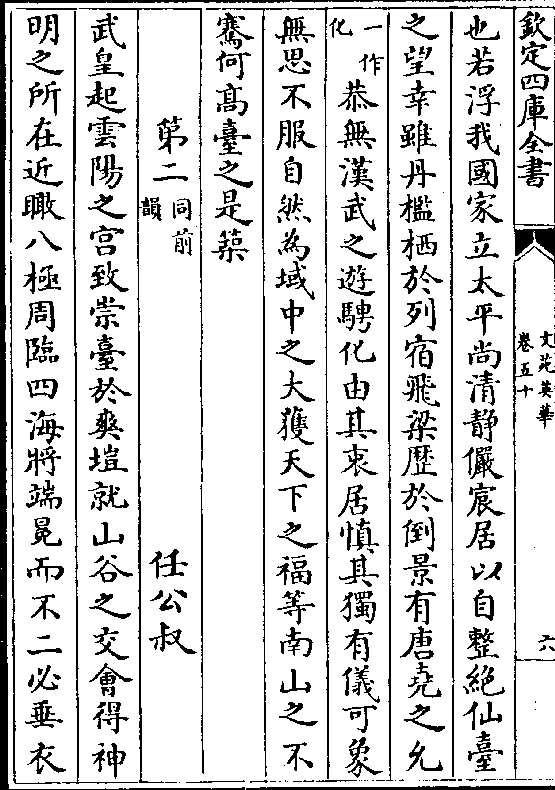 欽定四庫全書
文苑英華
卷五十
六
也若浮我國家立太平尚清静儼宸居以自整絶仙臺
之望幸雖丹檻栖於列宿飛梁歴於倒景有唐堯之允
一作
化
恭無漢武之遊騁化由其衷居慎其獨有儀可象
無思不服自然為域中之大獲天下之福等南山之不
騫何髙臺之是築
第二
同前
韻
任公叔
武皇起雲陽之宫致崇臺於爽塏就山谷之交會得神
明之所在近瞰八極周臨四海將端冕而不二必垂衣